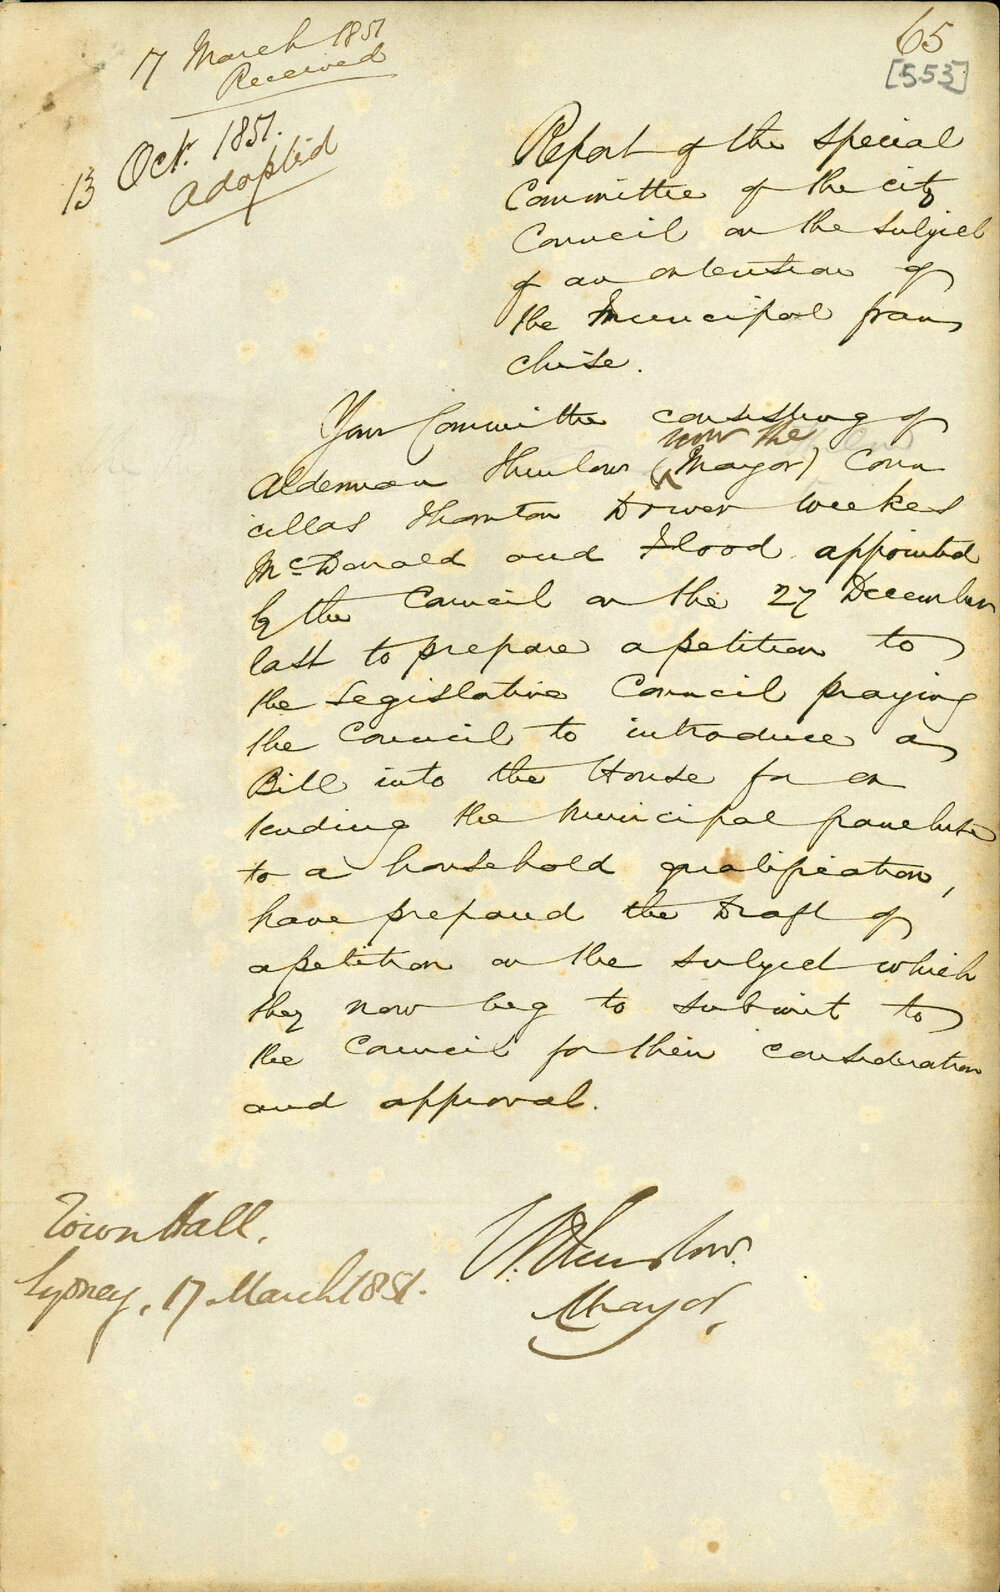 65
[553]
17 March 1851
Received
13 Oct. 1851.
Adopted
Report of the Special
Committee of the city
Council on the Subject
of an extension of
the Municipal fran
chise.
Your Committee consisting of
now the
Alderman Thurlow (Mayor) Coun
cillors Thornton Driver Weekes
McDonald and Flood appointed
by the Council on the 27 December
last to prepare a petition to
the Legislative Council praying
the Council to introduce a
Bill into the House for ex
tending the Municipal franchise
to a household qualification,
have prepared the Draft of
a petition on the subject which
they now beg to submit to
the Council for their consideration
and approval.
Town Hall.
Sydney, 17 March 1851.
W. Thurlow.
Mayor.